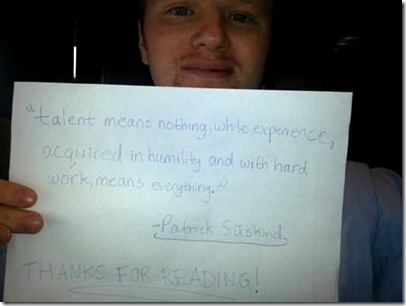 "talent means nothing, while experience,
acquired in humility and with hard
work, means everything."
-Patrick Süskind
THANKS FOR READING!